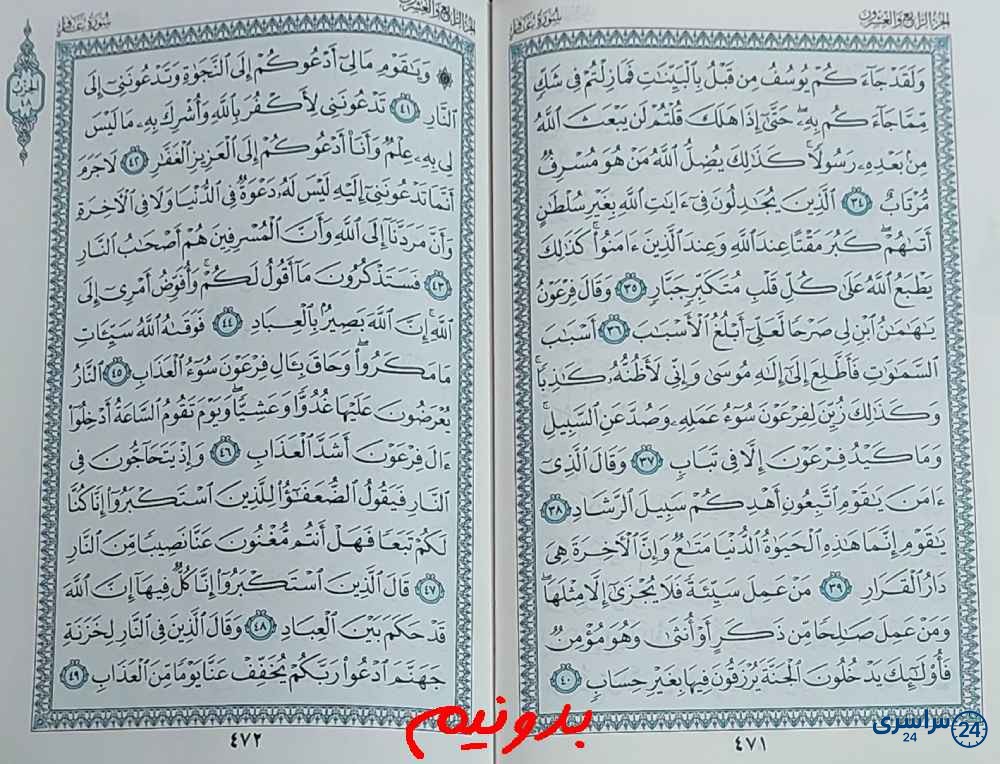 الجزء الرابع والعشرون
سورة غافر
وَلَقَدْ جَاءَكُمْ يُوسُفُ مِن قَبْلُ بِالْبَيِّنَٰتِ فَمَازِلْتُمْ فِي شَكٍّ
مِّمَّا جَاءَكُم بِهِۦ حَتَّىٰ إِذَا هَلَكَ قُلْتُمْ لَن يَبْعَثَ اللَّهُ
مِنۢ بَعْدِهِۦ رَسُولًا كَذَٰلِكَ يُضِلُّ اللَّهُ مَنْ هُوَ مُسْرِفٌ
مُّرْتَابٌ ٣٤ الَّذِينَ يُجَٰدِلُونَ فِي ءَايَٰتِ اللَّهِ بِغَيْرِ سُلْطَٰنٍ
أَتَىٰهُمْ كَبُرَ مَقْتًا عِندَ اللَّهِ وَعِندَ الَّذِينَ ءَامَنُوا كَذَٰلِكَ
يَطْبَعُ اللَّهُ عَلَىٰ كُلِّ قَلْبِ مُتَكَبِّرٍ جَبَّارٍ ٣٥ وَقَالَ فِرْعَوْنُ
يَٰهَٰمَٰنُ ابْنِ لِي صَرْحًا لَّعَلِّي أَبْلُغُ الْأَسْبَٰبَ ٣٦ أَسْبَٰبَ
السَّمَٰوَٰتِ فَأَطَّلِعَ إِلَىٰ إِلَٰهِ مُوسَىٰ وَإِنِّي لَأَظُنُّهُۥ كَٰذِبًا
وَكَذَٰلِكَ زُيِّنَ لِفِرْعَوْنَ سُوءُ عَمَلِهِۦ وَصُدَّ عَنِ السَّبِيلِ
وَمَا كَيْدُ فِرْعَوْنَ إِلَّا فِي تَبَابٍ ٣٧ وَقَالَ الَّذِي
ءَامَنَ يَٰقَوْمِ اتَّبِعُونِ أَهْدِكُمْ سَبِيلَ الرَّشَادِ ٣٨
يَٰقَوْمِ إِنَّمَا هَٰذِهِ الْحَيَوٰةُ الدُّنْيَا مَتَٰعٌ وَإِنَّ الْأَخِرَةَ هِيَ
دَارُ الْقَرَارِ ٣٩ مَنْ عَمِلَ سَيِّئَةً فَلَا يُجْزَىٰ إِلَّا مِثْلَهَا
وَمَنْ عَمِلَ صَٰلِحًا مِّن ذَكَرٍ أَوْ أُنثَىٰ وَهُوَ مُؤْمِنٌ
فَأُولَٰئِكَ يَدْخُلُونَ الْجَنَّةَ يُرْزَقُونَ فِيهَا بِغَيْرِ حِسَابٍ ٤٠
٤٧١
الجزء الرابع والعشرون
سورة غافر
الحزب
٤٨
وَيَٰقَوْمِ مَا لِي أَدْعُوكُمْ إِلَى النَّجَوٰةِ وَتَدْعُونَنِي إِلَى
النَّارِ ٤١ تَدْعُونَنِي لِأَكْفُرَ بِاللَّهِ وَأُشْرِكَ بِهِۦ مَا لَيْسَ
لِي بِهِۦ عِلْمٌ وَأَنَا۠ أَدْعُوكُمْ إِلَى الْعَزِيزِ الْغَفَّٰرِ ٤٢ لَا جَرَمَ
أَنَّمَا تَدْعُونَنِي إِلَيْهِ لَيْسَ لَهُۥ دَعْوَةٌ فِي الدُّنْيَا وَلَا فِي الْأَخِرَةِ
وَأَنَّ مَرَدَّنَا إِلَى اللَّهِ وَأَنَّ الْمُسْرِفِينَ هُمْ أَصْحَٰبُ النَّارِ
٤٣ فَسَتَذْكُرُونَ مَا أَقُولُ لَكُمْ وَأُفَوِّضُ أَمْرِي إِلَى
اللَّهِ إِنَّ اللَّهَ بَصِيرٌۢ بِالْعِبَادِ ٤٤ فَوَقَىٰهُ اللَّهُ سَيِّئَاتِ
مَا مَكَرُوا وَحَاقَ بِئَالِ فِرْعَوْنَ سُوءُ الْعَذَابِ ٤٥ النَّارُ
يُعْرَضُونَ عَلَيْهَا غُدُوًّا وَعَشِيًّا وَيَوْمَ تَقُومُ السَّاعَةُ أَدْخِلُوا
ءَالَ فِرْعَوْنَ أَشَدَّ الْعَذَابِ ٤٦ وَإِذْ يَتَحَاجُّونَ فِي
النَّارِ فَيَقُولُ الضُّعَفَٰؤُا لِلَّذِينَ اسْتَكْبَرُوا إِنَّا كُنَّا
لَكُمْ تَبَعًا فَهَلْ أَنتُم مُّغْنُونَ عَنَّا نَصِيبًا مِّنَ النَّارِ
٤٧ قَالَ الَّذِينَ اسْتَكْبَرُوا إِنَّا كُلٌّ فِيهَا إِنَّ اللَّهَ
قَدْ حَكَمَ بَيْنَ الْعِبَادِ ٤٨ وَقَالَ الَّذِينَ فِي النَّارِ لِخَزَنَةِ
جَهَنَّمَ ادْعُوا رَبَّكُمْ يُخَفِّفْ عَنَّا يَوْمًا مِّنَ الْعَذَابِ ٤٩
٤٧٢
بدونیم
سراسری 24
24